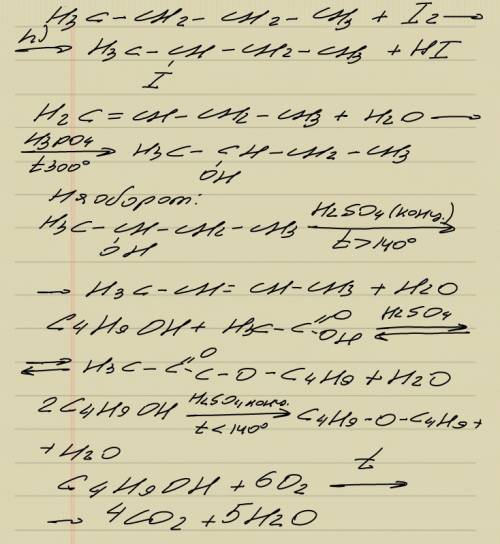 H₃C – CH₂ – CH₂ – CH₃ + I₂ ⟶
hν ⟶ H₃C – CH – CH₂ – CH₃ + HI
I
H₂C = CH – CH₂ – CH₃ + H₂O ⟶
H₃PO₄ t300° ⟶ H₃C – CH – CH₂ – CH₃
OH
Наоборот:
H₃C – CH – CH₂ – CH₃ H₂SO₄ (конц.) t>140° ⟶
OH
→ H₃C – CH = CH – CH₃ + H₂O
C₄H₉OH + H₃C – C =O OH H₂SO₄ ⇌
⇌ H₃C – C =O – C – O – C₄H₉ + H₂O
2C₄H₉OH H₂SO₄ конц. t<140° ⟶ C₄H₉ – O – C₄H₉ +
+ H₂O
C₄H₉OH + 6O₂ t ⟶
→ 4CO₂ + 5H₂O